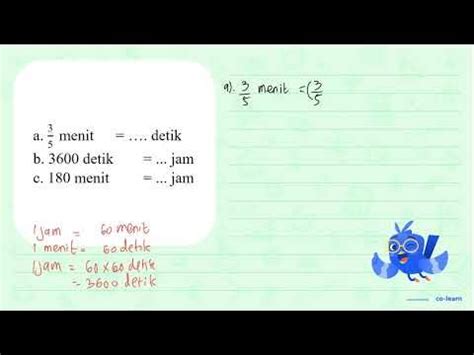 a. 3/5 menit = .... detik
b. 3600 detik = ... jam
c. 180 menit = ... jam
1jam = 60 menit
1 menit = 60 detik
1jam = 60 x 60 detik
= 3600 detik
a). 3/5 menit = (3/5
co-learn